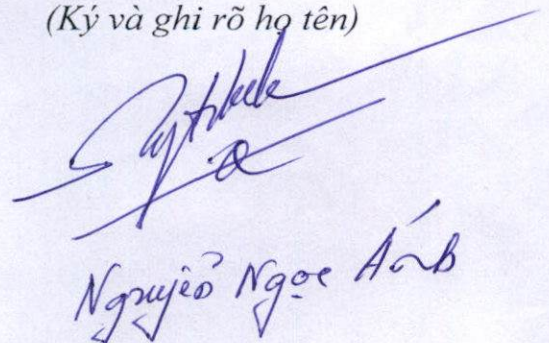 (Ký và ghi rõ họ tên)
Nguyễn Ngọc Ánh